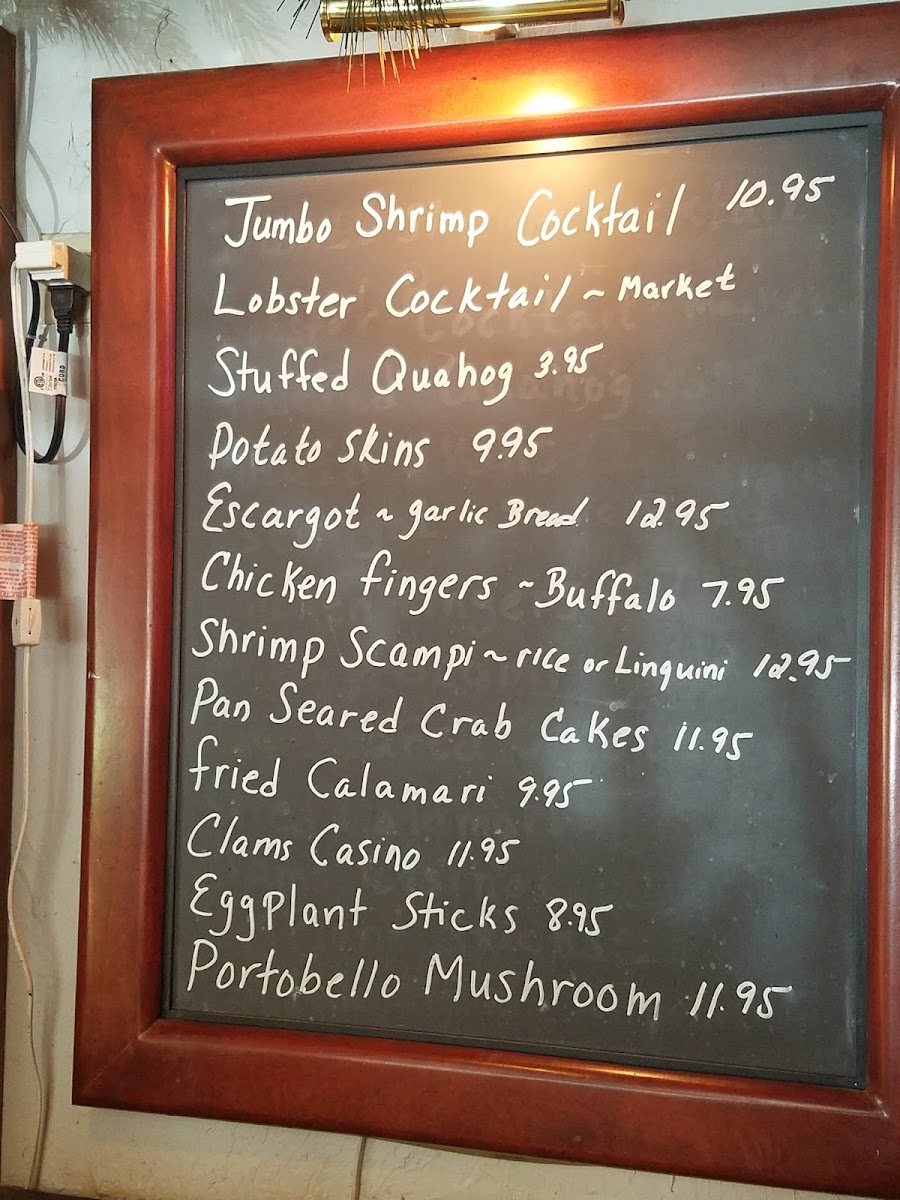 Jumbo Shrimp Cocktail 10.95
Lobster Cocktail ~ Market
Stuffed Quahog 3.95
Potato Skins 9.95
Escargot ~ garlic Bread 12.95
Chicken fingers ~ Buffalo 7.95
Shrimp Scampi ~ rice or Linguini 12.95
Pan Seared Crab Cakes 11.95
fried Calamari 9.95
Clams Casino 11.95
Eggplant Sticks 8.95
Portobello Mushroom 11.95